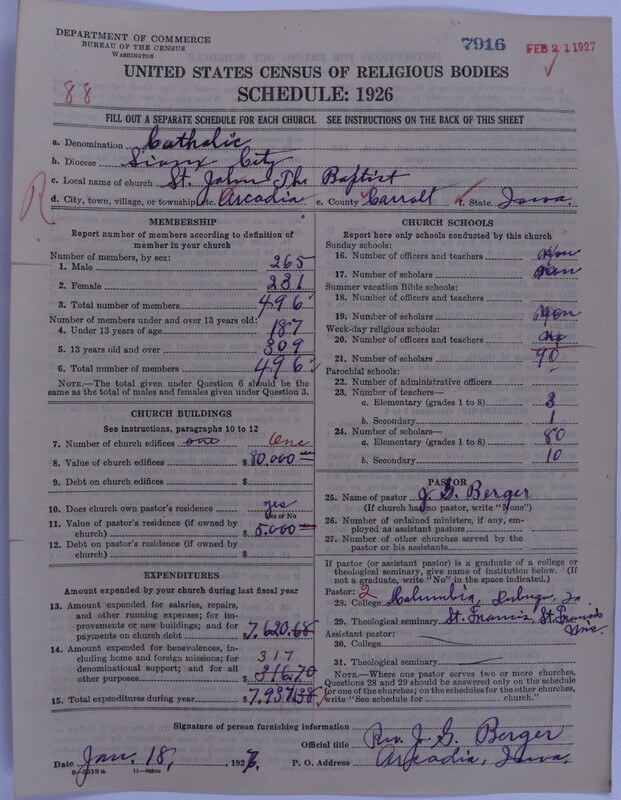 DEPARTMENT OF COMMERCE
BUREAU OF THE CENSUS
WASHINGTON
7916
FEB 21 1927
UNITED STATES CENSUS OF RELIGIOUS BODIES
SCHEDULE: 1926
88
FILL OUT A SEPARATE SCHEDULE FOR EACH CHURCH. SEE INSTRUCTIONS ON THE BACK OF THIS SHEET
a. Denomination Catholic
b. Diocese Sioux City
c. Local name of church St. John The Baptist
d. City, town, village, or township, etc. Arcadia e. County Carroll f. State Iowa.
R
MEMBERSHIP
Report number of members according to definition of
member in your church
Number of members, by sex:
1. Male 265
2. Female 231
3. Total number of members 496
Number of members under and over 13 years old:
4. Under 13 years of age 187
5. 13 years old and over 309
6. Total number of members 496
NOTE.—The total given under Question 6 should be
same as the total of males and females given under Question 3.
CHURCH BUILDINGS
See instructions, paragraphs 10 to 12
7. Number of church edifices one One
8. Value of church edifices $ 80.000
9. Debt on church edifices $
10. Does church own pastor's residence yes
Yes or No
11. Value of pastor's residence (if owned by
church) $ 5.000
12. Debt on pastor's residence (if owned by
church) $
EXPENDITURES
Amount expended by your church during last fiscal year
13. Amount expended for salaries, repairs,
and other running expenses; for im-
provements or new buildings; and for
payments on church debt 7,620.68
14. Amount expended for benevolences, in-
cluding home and foreign missions; for
denominational support; and for all
other purposes $ 316.70
317
15. Total expenditures during year $ 7,937.38
CHURCH SCHOOLS
Report here only schools conducted by this church
Sunday schools:
16. Number of officers and teachers
17. Number of scholars
Summer vacation Bible schools:
18. Number of officers and teachers
19. Number of scholars
Week-day religious schools:
20. Number of officers and teachers
21. Number of scholars 90
Parochial schools:
22. Number of administrative officers
23. Number of teachers—
a. Elementary (grades 1 to 8) 3
b. Secondary 1
24. Number of scholars—
a. Elementary (grades 1 to 8) 80
b. Secondary 10
PASTOR
25. Name of pastor J. G. Berger
(If church has no pastor, write "None")
26. Number of ordained ministers, if any, em-
ployed as assistant pastors
27. Number of other churches served by the
pastor or his assistants
If pastor (or assistant pastor) is a graduate of a college or
theological seminary, give name of institution below. (If
not a graduate, write "No" in the space indicated.)
Pastor: 2
28. College Columbia, Dubuque, Ia
29. Theological seminary St. Francis, St. Francis
Wis.
Assistant pastor:
30. College
31. Theological seminary
NOTE.—Where one pastor serves two or more churches,
Questions 28 and 29 should be answered only on the schedule
for one of the churches; on the schedules for the other churches,
write "See schedule for church."
Signature of person furnishing information
Official title Rev. J. G. Berger
Date Jan. 18, 1927. P. O. Address Arcadia, Iowa.